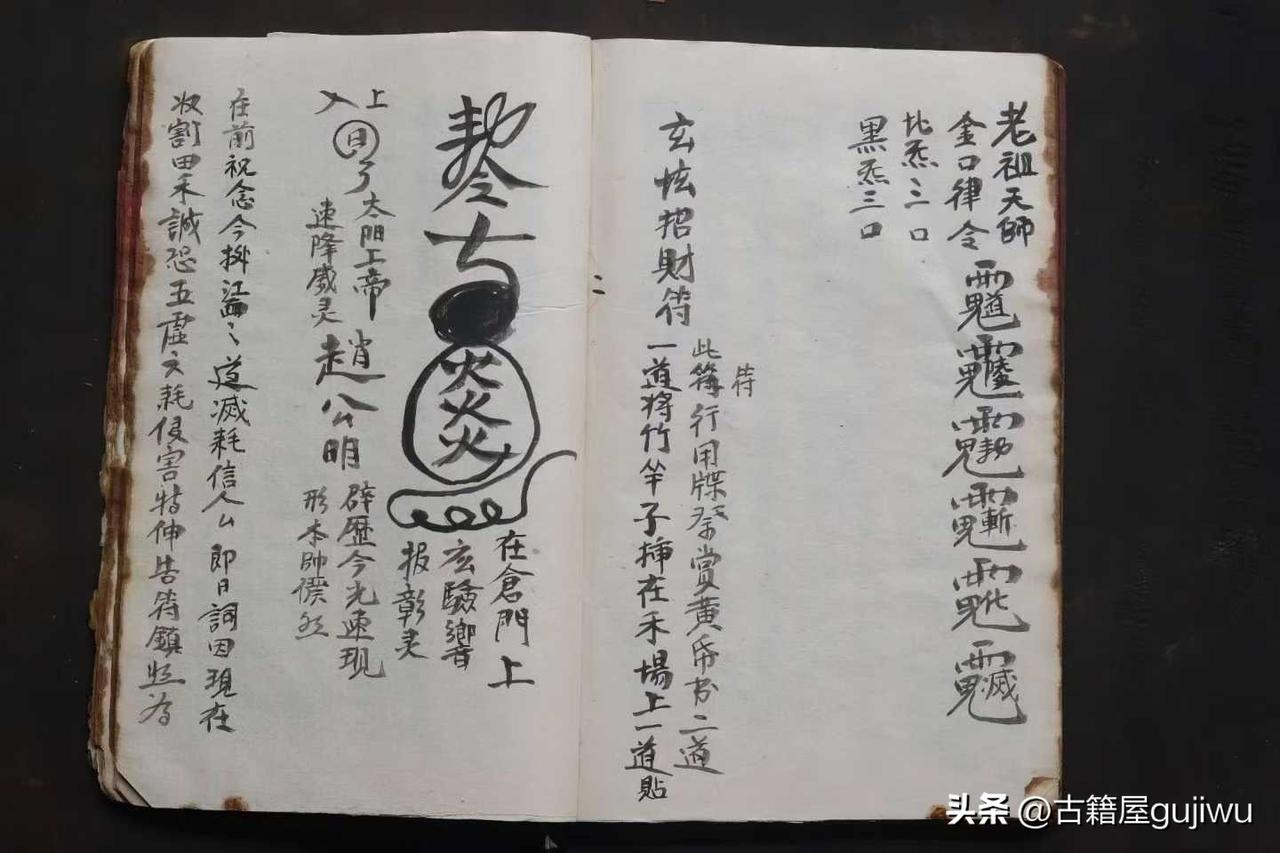 老祖天師
金口律令
北炁三口
黑炁三口
玄坛招財符
此符行用牒祭赏黄帋书二道
符
一道将竹竿子揷在禾場上一道貼
二
在倉門上
玄驗響
报彰灵
敕令
炎火
上
入
日
了
太阳上帝
速降威灵
趙公明
辟歷今光速现
形本帥倏然
在前祝念今據
道滅耗信人厶即日詞因現在
收割田禾誠恐五虚六耗侵害特伸告符鎮
为
头条 @古籍屋gujiwu